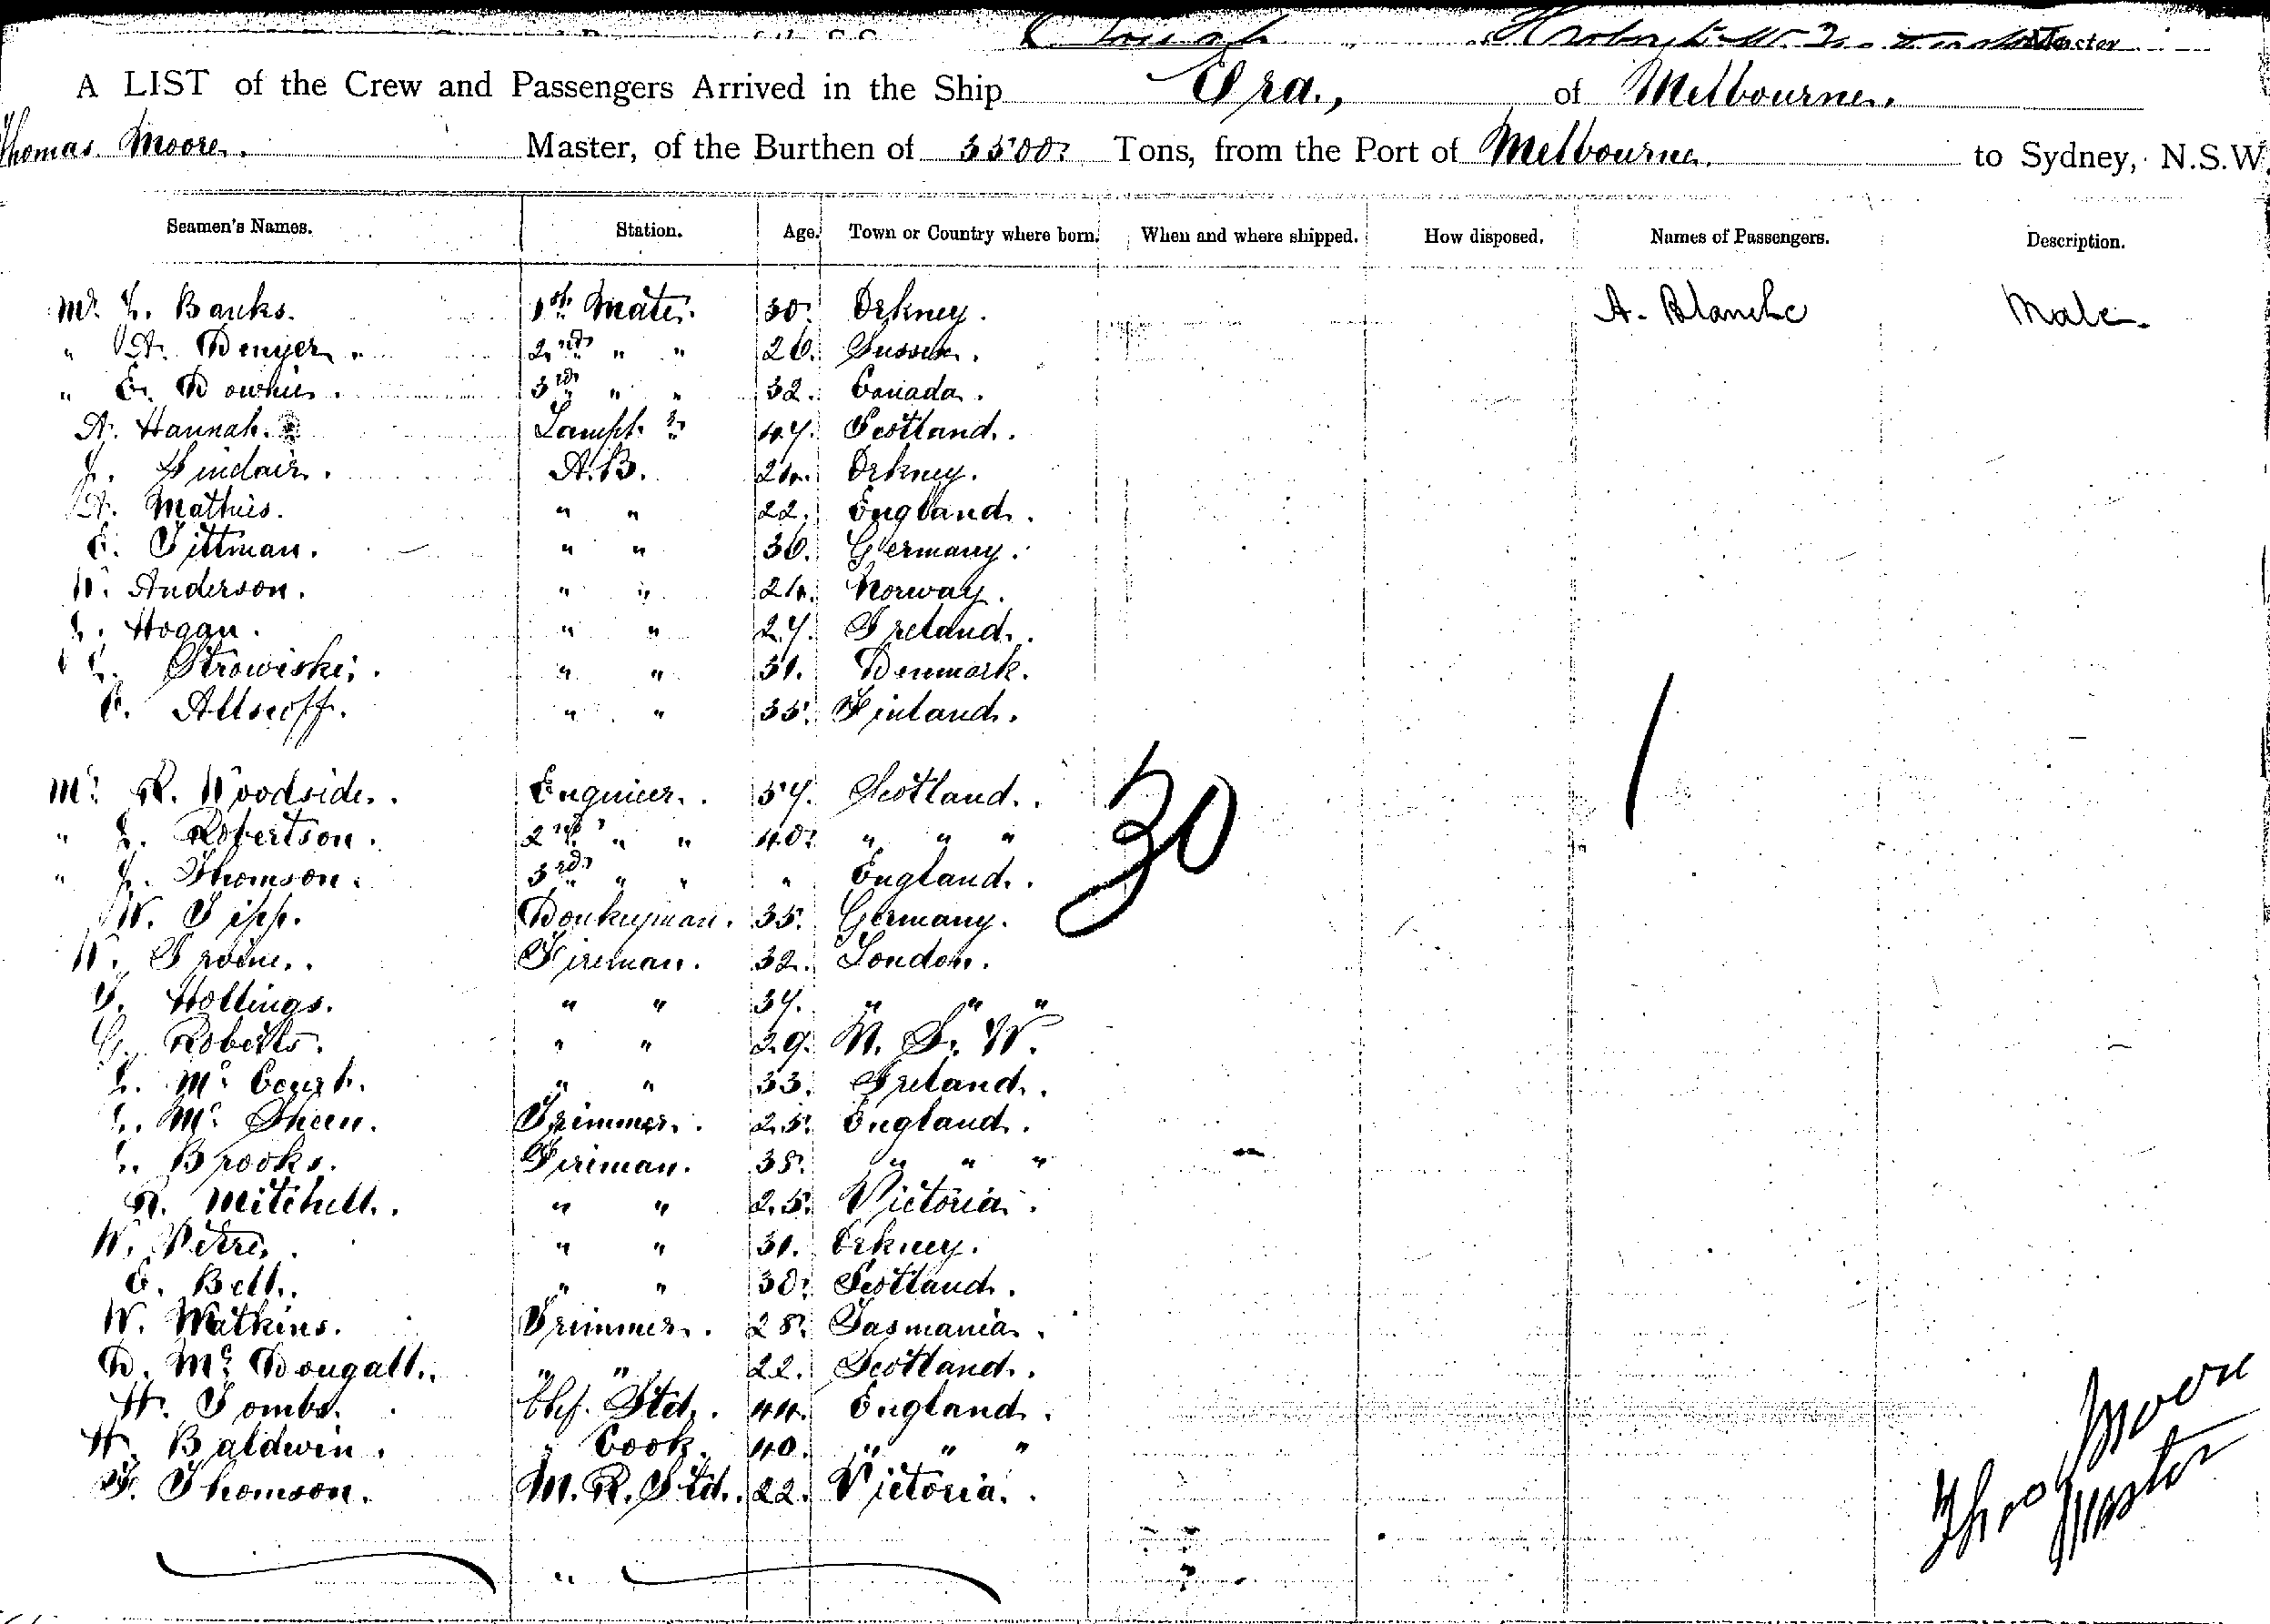 A LIST of the Crew and Passengers Arrived in the Ship Era, of Melbourne.
Thomas Moore. Master, of the Burthen of 3500 Tons, from the Port of Melbourne. to Sydney, N.S.W.
Seamen's Names. Station. Age. Town or Country where born. When and where shipped. How disposed. Names of Passengers. Description.
Mr. Banks. 1st Mate. 30. Orkney. A. Blanche Male.
" A. Denyer. 2nd " " 26. Sussex.
" E. Downie. 3rd " " 32. Canada.
A. Hannah. Lampt. 47. Scotland.
J. Sinclair. A.B. 24. Orkney.
A. Mathies. " " 22. England.
C. Tittman. " " 36. Germany.
Anderson. " " 24. Norway.
Hogan. " " 27. Ireland.
Strowiske. " " 31. Denmark.
" " 35. Finland.
Mr. R. Woodside. Engineer. 57. Scotland.
" Robertson. 2nd " " 40. " " "
" J. Thomson. 3rd " " " England.
W. Tipp. Donkeyman. 35. Germany.
Fireman. 32. London.
Hollings. " " 37. " " "
G. Roberts. " " 29. N. S. W.
Mc Court. " " 33. Ireland.
Mc Sheen. Trimmer. 25. England.
Brooks. Fireman. 38. " " "
R. Mitchell. " " 25. Victoria.
W. Petrie. " " 31. Orkney.
C. Bell. " " 30. Scotland.
W. Watkins. Trimmer. 28. Tasmania.
D. Mc Dougall. " " 22. Scotland.
H. Tombs. Chf. Std. 44. England.
H. Baldwin. " Cook. 40. " " "
F. Thomson. M. R. Std. 22. Victoria.
30
1
Thos Moore
Master